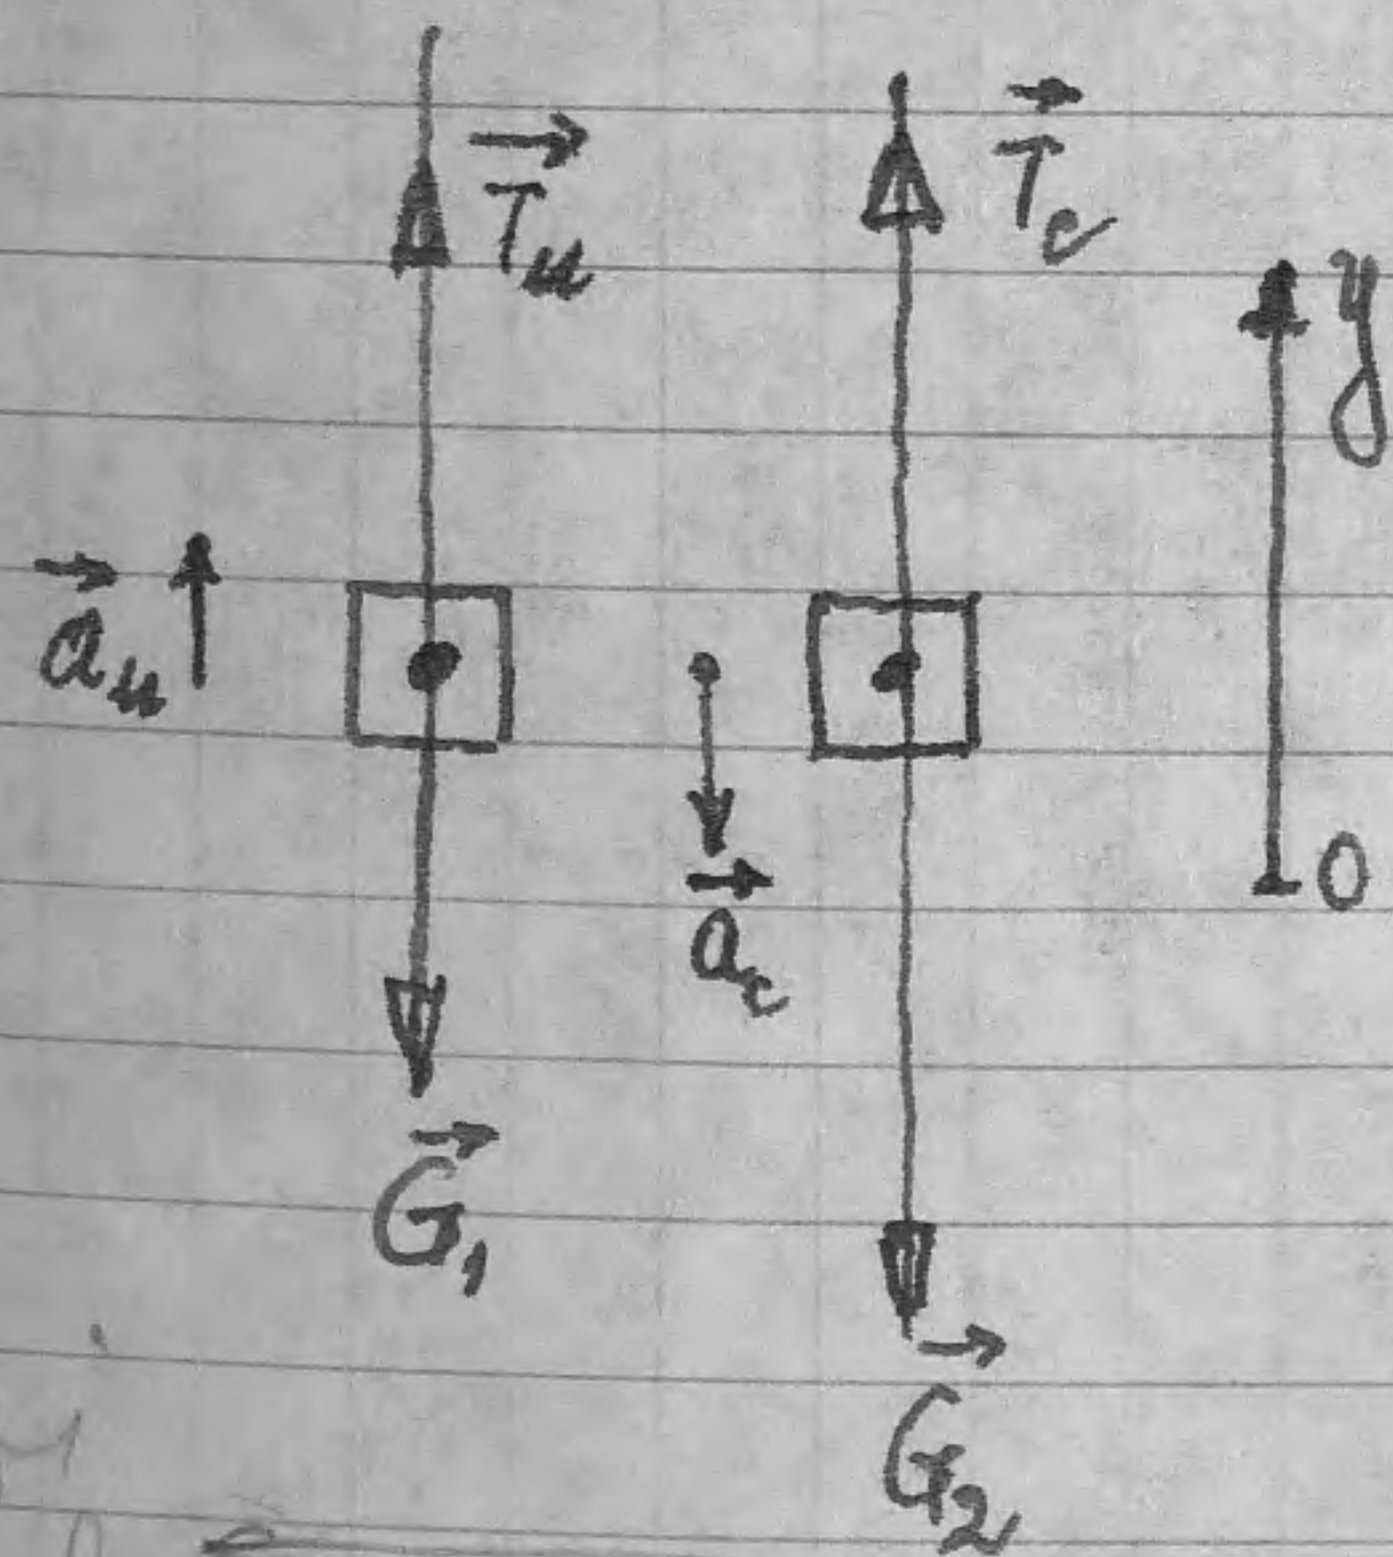 T⃗u T⃗c
y
a⃗u
a⃗c
0
G⃗1
G⃗2